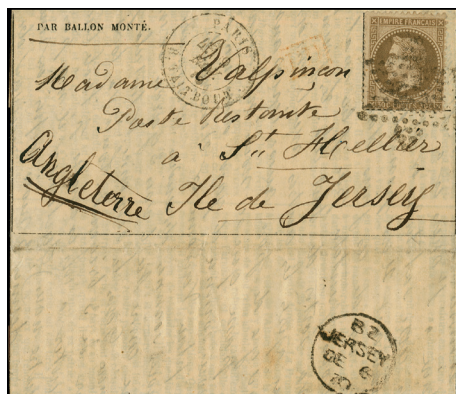 PAR BALLON MONTÉ.
PARIS
R. TAITBOUT
EMPIRE FRANÇAIS
Madame Valpinçon
Poste Restante
à St. Hellier
Angleterre Ile de Jersey
BZ
JERSEY
DE 6
70